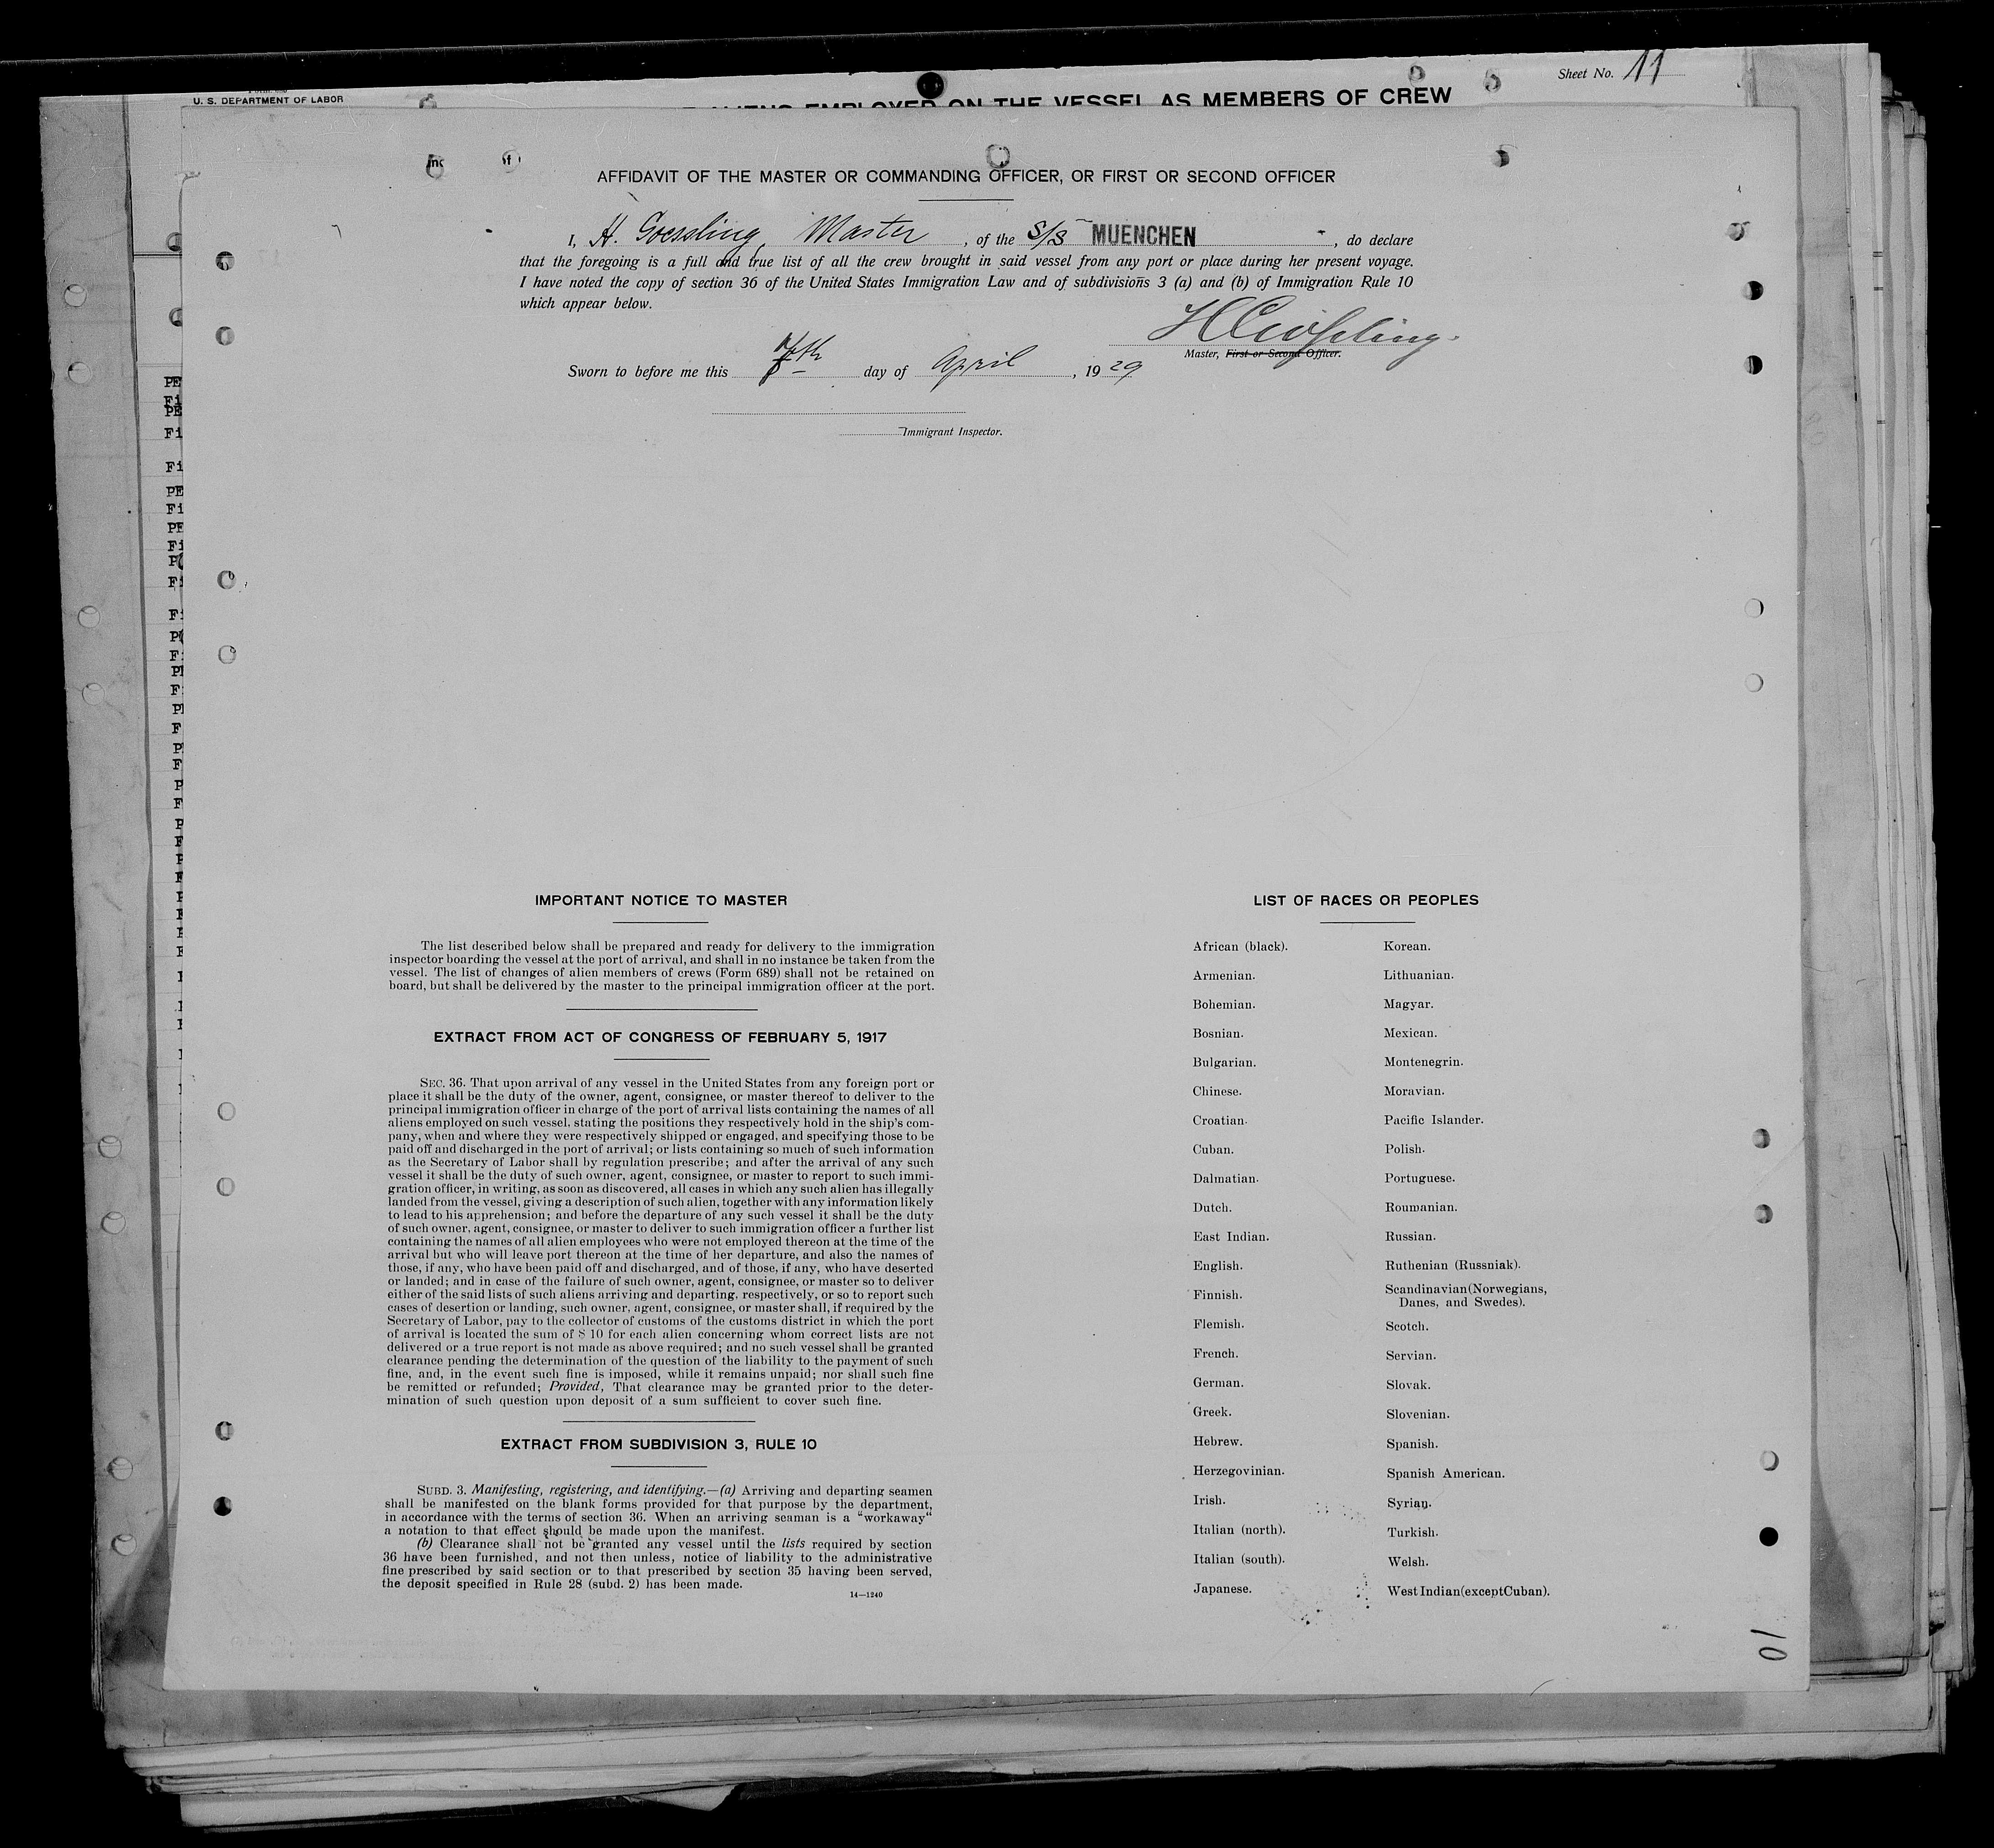 U. S. DEPARTMENT OF LABOR
Sheet No. 11
ALIENS EMPLOYED ON THE VESSEL AS MEMBERS OF CREW
AFFIDAVIT OF THE MASTER OR COMMANDING OFFICER, OR FIRST OR SECOND OFFICER
I, H. Goessling, Master, of the S/S MUENCHEN, do declare
that the foregoing is a full and true list of all the crew brought in said vessel from any port or place during her present voyage.
I have noted the copy of section 36 of the United States Immigration Law and of subdivisions 3 (a) and (b) of Immigration Rule 10
which appear below.
HGoessling.
Master, First or Second Officer.
Sworn to before me this 7th day of April, 1929
Immigrant Inspector.
IMPORTANT NOTICE TO MASTER
The list described below shall be prepared and ready for delivery to the immigration
inspector boarding the vessel at the port of arrival, and shall in no instance be taken from the
vessel. The list of changes of alien members of crews (Form 689) shall not be retained on
board, but shall be delivered by the master to the principal immigration officer at the port.
EXTRACT FROM ACT OF CONGRESS OF FEBRUARY 5, 1917
SEC. 36. That upon arrival of any vessel in the United States from any foreign port or
place it shall be the duty of the owner, agent, consignee, or master thereof to deliver to the
principal immigration officer in charge of the port of arrival lists containing the names of all
aliens employed on such vessel, stating the positions they respectively hold in the ship's com-
pany, when and where they were respectively shipped or engaged, and specifying those to be
paid off and discharged in the port of arrival; or lists containing so much of such information
as the Secretary of Labor shall by regulation prescribe; and after the arrival of any such
vessel it shall be the duty of such owner, agent, consignee, or master to report to such immi-
gration officer, in writing, as soon as discovered, all cases in which any such alien has illegally
landed from the vessel, giving a description of such alien, together with any information likely
to lead to his apprehension; and before the departure of any such vessel it shall be the duty
of such owner, agent, consignee, or master to deliver to such immigration officer a further list
containing the names of all alien employees who were not employed thereon at the time of the
arrival but who will leave port thereon at the time of her departure, and also the names of
those, if any, who have been paid off and discharged, and of those, if any, who have deserted
or landed; and in case of the failure of such owner, agent, consignee, or master so to deliver
either of the said lists of such aliens arriving and departing, respectively, or so to report such
cases of desertion or landing, such owner, agent, consignee, or master shall, if required by the
Secretary of Labor, pay to the collector of customs of the customs district in which the port
of arrival is located the sum of $ 10 for each alien concerning whom correct lists are not
delivered or a true report is not made as above required; and no such vessel shall be granted
clearance pending the determination of the question of the liability to the payment of such
fine, and, in the event such fine is imposed, while it remains unpaid; nor shall such fine
be remitted or refunded; Provided, That clearance may be granted prior to the deter-
mination of such question upon deposit of a sum sufficient to cover such fine.
EXTRACT FROM SUBDIVISION 3, RULE 10
SUBD. 3. Manifesting, registering, and identifying.—(a) Arriving and departing seamen
shall be manifested on the blank forms provided for that purpose by the department,
in accordance with the terms of section 36. When an arriving seaman is a "workaway"
a notation to that effect should be made upon the manifest.
(b) Clearance shall not be granted any vessel until the lists required by section
36 have been furnished, and not then unless, notice of liability to the administrative
fine prescribed by said section or to that prescribed by section 35 having been served,
the deposit specified in Rule 28 (subd. 2) has been made.
14—1240
LIST OF RACES OR PEOPLES
African (black).
Armenian.
Bohemian.
Bosnian.
Bulgarian.
Chinese.
Croatian.
Cuban.
Dalmatian.
Dutch.
East Indian.
English.
Finnish.
Flemish.
French.
German.
Greek.
Hebrew.
Herzegovinian.
Irish.
Italian (north).
Italian (south).
Japanese.
Korean.
Lithuanian.
Magyar.
Mexican.
Montenegrin.
Moravian.
Pacific Islander.
Polish.
Portuguese.
Roumanian.
Russian.
Ruthenian (Russniak).
Scandinavian (Norwegians,
Danes, and Swedes).
Scotch.
Servian.
Slovak.
Slovenian.
Spanish.
Spanish American.
Syrian.
Turkish.
Welsh.
West Indian (except Cuban).
10